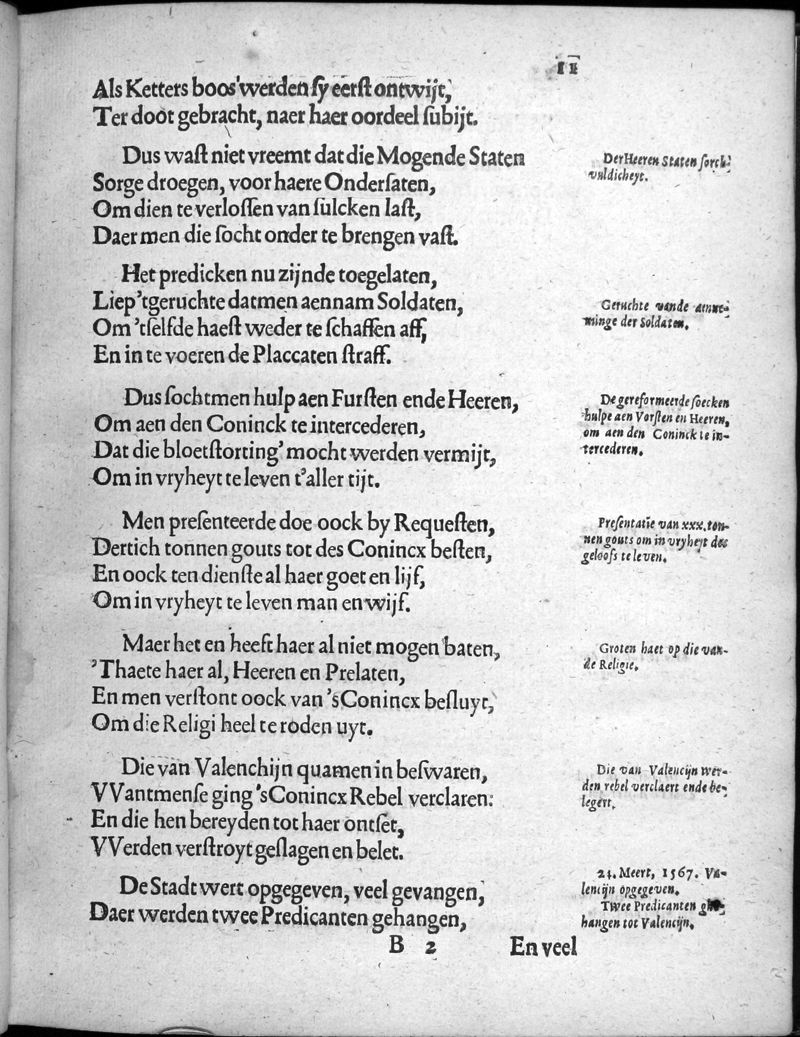 11
Als Ketters boos' werden sy eerst ontwijt,
Ter doot gebracht, naer haer oordeel subijt.
Dus wast niet vreemt dat die Mogende Staten
Sorge droegen, voor haere Ondersaten,
Om dien te verlossen van sulcken last,
Daer men die socht onder te brengen vast.
Der Heeren Staten sorch-
vuldicheyt.
Het predicken nu zijnde toegelaten,
Liep 'tgeruchte datmen aennam Soldaten,
Om 'tselfde haest weder te schaffen aff,
En in te voeren de Placcaten straff.
Geruchte vande aenne-
minge der Soldaten.
Dus sochtmen hulp aen Fursten ende Heeren,
Om aen den Coninck te intercederen,
Dat die bloetstorting' mocht werden vermijt,
Om in vryheyt te leven t'aller tijt.
De gereformeerde soecken
hulpe aen Vorsten en Heeren,
om aen den Coninck te in-
tercederen.
Men presenteerde doe oock by Requesten,
Dertich tonnen gouts tot des Conincx besten,
En oock ten dienste al haer goet en lijf,
Om in vryheyt te leven man en wijf.
Presentatie van xxx. ton-
nen gouts om in vryheyt des
geloofs te leven.
Maer het en heeft haer al niet mogen baten,
'Thaete haer al, Heeren en Prelaten,
En men verstont oock van 'sConincx besluyt,
Om die Religi heel te roden uyt.
Groten haet op die van-
de Religie.
Die van Valenchijn quamen in beswaren,
VVantmense ging 'sConincx Rebel verclaren:
En die hen bereyden tot haer ontset,
VVerden verstroyt geslagen en belet.
Die van Valencijn wer-
den rebel verclaert ende be-
legert.
De Stadt wert opgegeven, veel gevangen,
Daer werden twee Predicanten gehangen,
24. Meert, 1567. Va-
lencijn opgegeven.
Twee Predicanten ge-
hangen tot Valencijn.
B 2 En veel